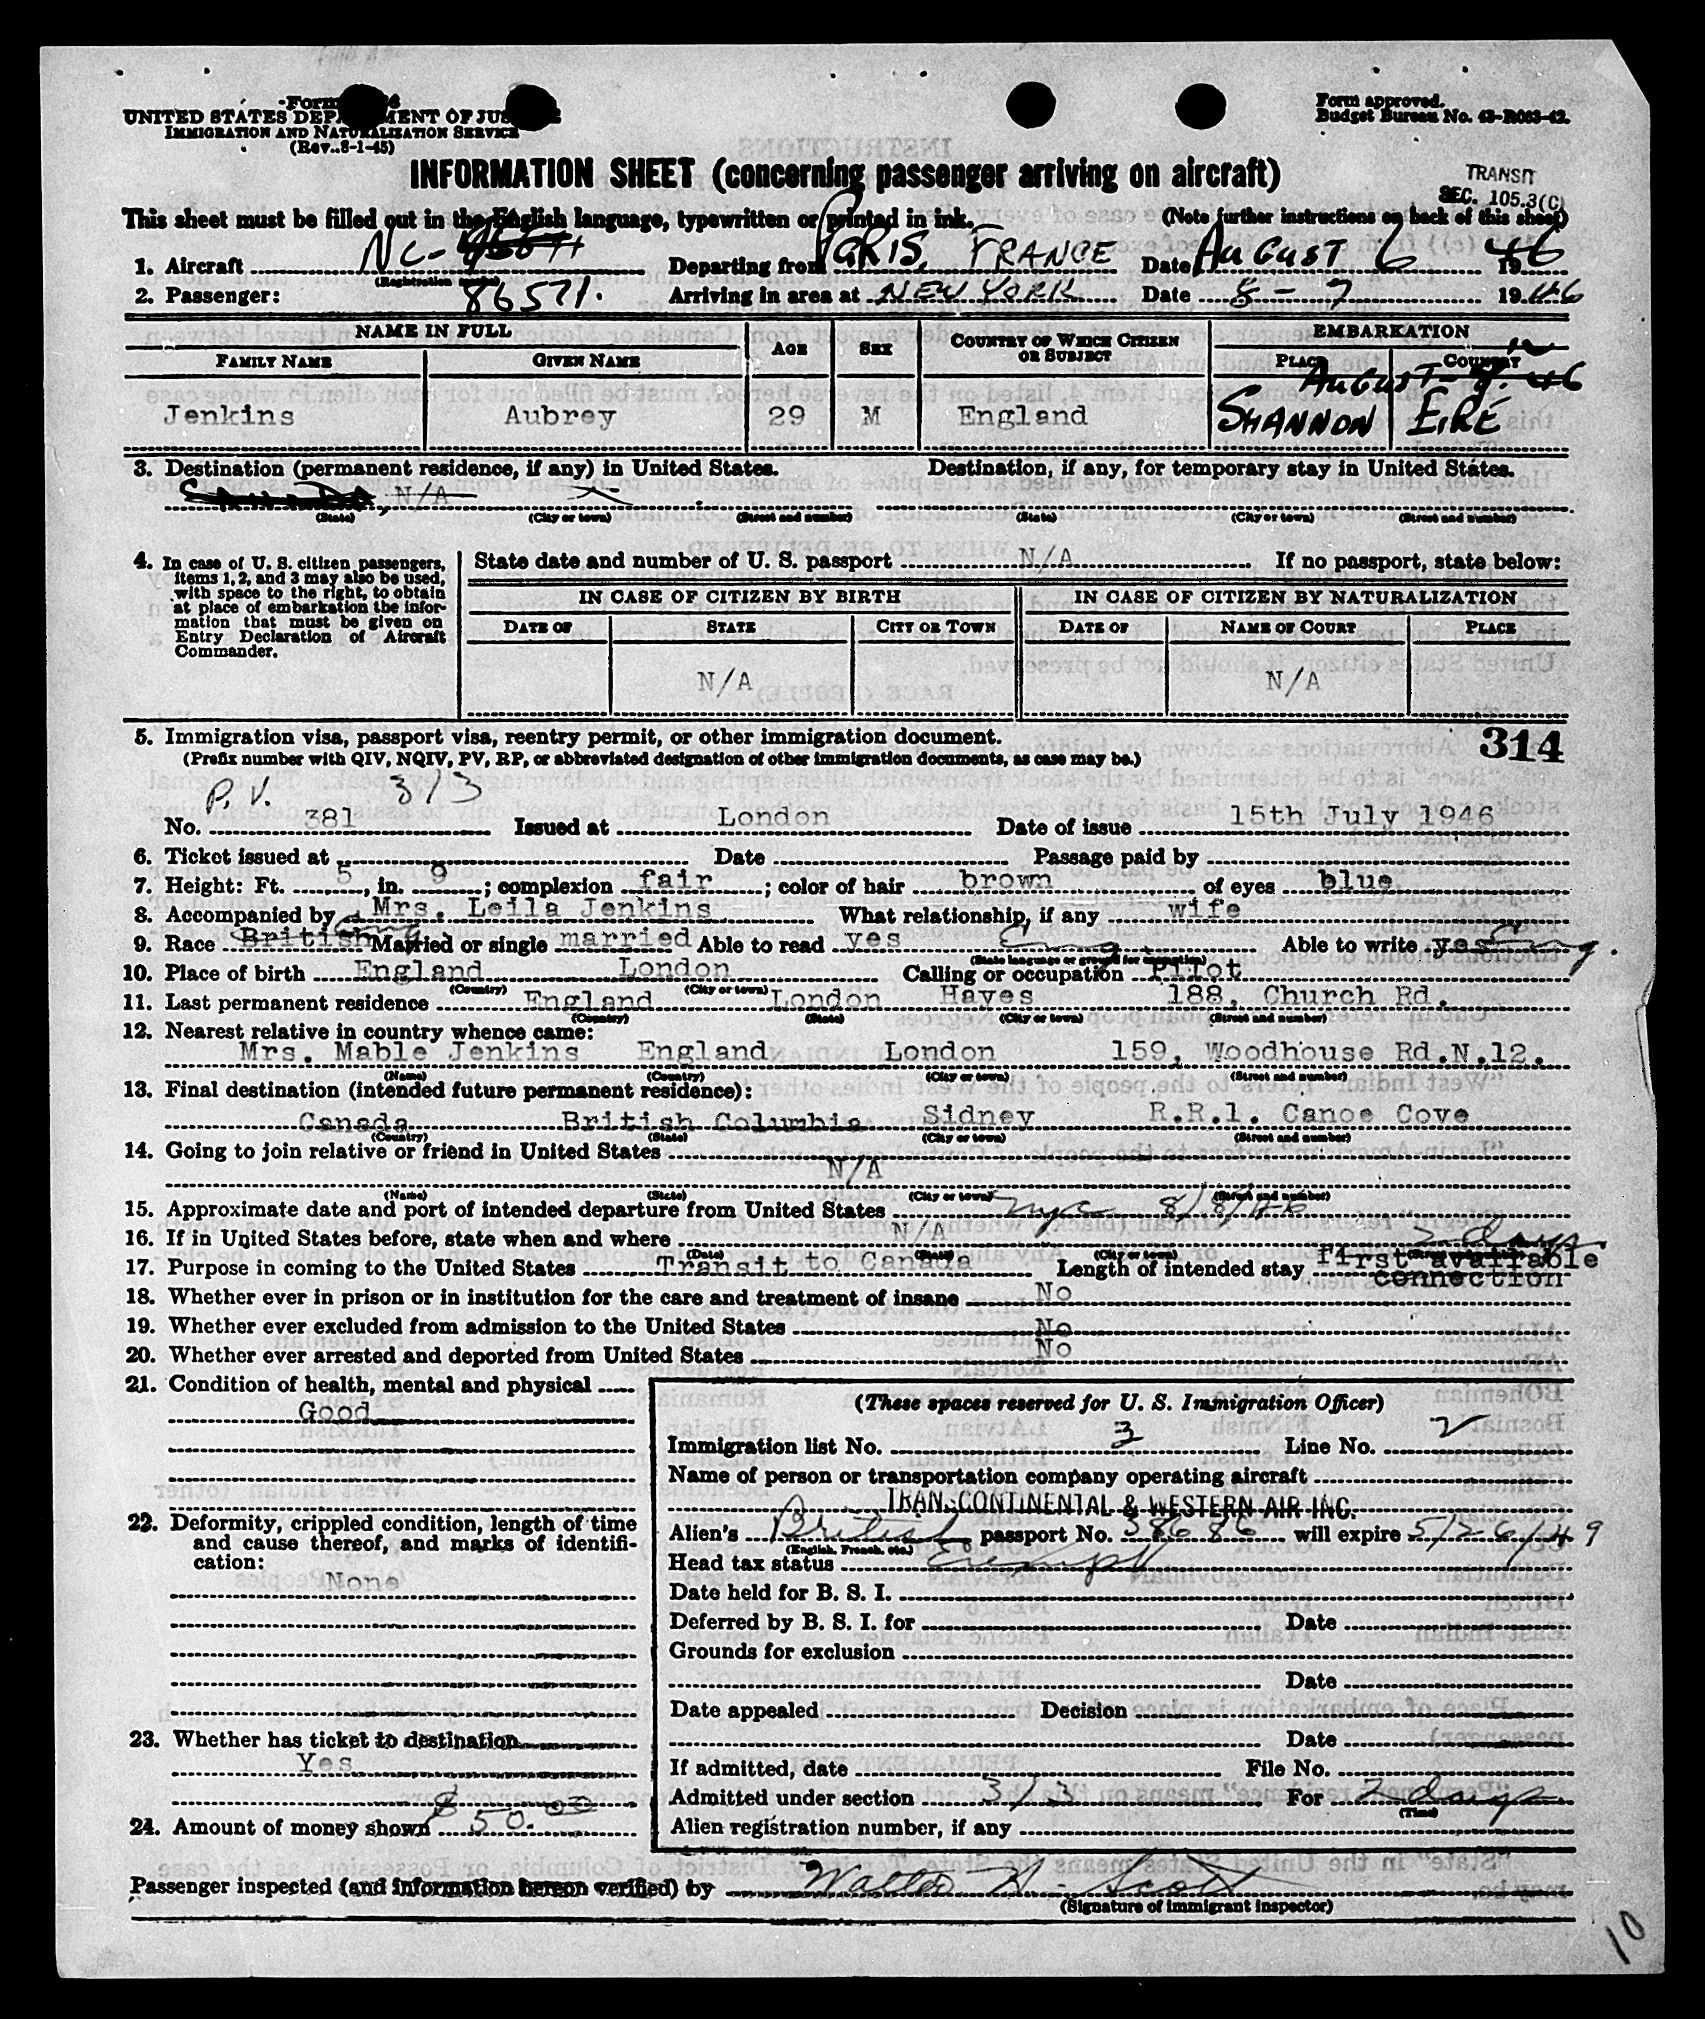 Form
UNITED STATES DEPARTMENT OF JUSTICE
IMMIGRATION AND NATURALIZATION SERVICE
(Rev. 8-1-45)
Form approved.
Budget Bureau No. 43-R063-42.
INFORMATION SHEET (concerning passenger arriving on aircraft)
TRANSIT
SEC. 105.3(C)
This sheet must be filled out in the English language, typewritten or printed in ink. (Note further instructions on back of this sheet)
1. Aircraft NC- Departing from PARIS, FRANCE Date AUGUST 6 1946
(Registration number)
2. Passenger: 86571. Arriving in area at NEW YORK Date 8-7 1946
NAME IN FULL AGE SEX COUNTRY OF WHICH CITIZEN OR SUBJECT EMBARKATION
FAMILY NAME GIVEN NAME PLACE COUNTRY
AUGUST 46
Jenkins Aubrey 29 M England SHANNON EIRE
3. Destination (permanent residence, if any) in United States. Destination, if any, for temporary stay in United States.
N/A
(State) (City or town) (Street and number) (State) (City or town) (Street and number)
4. In case of U. S. citizen passengers, items 1, 2, and 3 may also be used, with space to the right, to obtain at place of embarkation the information that must be given on Entry Declaration of Aircraft Commander.
State date and number of U. S. passport N/A If no passport, state below:
IN CASE OF CITIZEN BY BIRTH IN CASE OF CITIZEN BY NATURALIZATION
DATE OF STATE CITY OR TOWN DATE OF NAME OF COURT PLACE
N/A N/A
5. Immigration visa, passport visa, reentry permit, or other immigration document. 314
(Prefix number with QIV, NQIV, PV, RP, or abbreviated designation of other immigration documents, as case may be.)
P. V. 3/3
No. 381 Issued at London Date of issue 15th July 1946
6. Ticket issued at Date Passage paid by
7. Height: Ft. 5, in. 9; complexion fair; color of hair brown of eyes blue
8. Accompanied by Mrs. Leila Jenkins What relationship, if any wife
9. Race British Eng Married or single married Able to read yes Eng. Able to write yes Eng.
(State language or ground for exemption)
10. Place of birth England London Calling or occupation Pilot
(Country) (City or town)
11. Last permanent residence England London Hayes 188, Church Rd.
(Country) (State) (City or town) (Street and number)
12. Nearest relative in country whence came:
Mrs. Mable Jenkins England London 159, Woodhouse Rd.N.12.
(Name) (Country) (City or town) (Street and number)
13. Final destination (intended future permanent residence):
Canada British Columbia Sidney R.R.1. Canoe Cove
(Country) (State) (City or town) (Street and number)
14. Going to join relative or friend in United States
N/A
(Name) (State) (City or town) (Street and number)
15. Approximate date and port of intended departure from United States nyc 8/8/46
16. If in United States before, state when and where N/A
(Date) (State) (City or town) (Street and number)
2 days
17. Purpose in coming to the United States Transit to Canada Length of intended stay first available
connection
18. Whether ever in prison or in institution for the care and treatment of insane No
19. Whether ever excluded from admission to the United States No
20. Whether ever arrested and deported from United States No
21. Condition of health, mental and physical
Good
22. Deformity, crippled condition, length of time and cause thereof, and marks of identification:
None
23. Whether has ticket to destination
Yes
24. Amount of money shown $50.00
(These spaces reserved for U. S. Immigration Officer)
Immigration list No. 3 Line No. 2
Name of person or transportation company operating aircraft
TRANSCONTINENTAL & WESTERN AIR INC.
Alien's British passport No. 58686 will expire 5/26/49
(English, French, etc.)
Head tax status Exempt
Date held for B. S. I.
Deferred by B. S. I. for Date
Grounds for exclusion
Date
Date appealed Decision
Date
If admitted, date File No.
Admitted under section 3/3 For 2 days
(Time)
Alien registration number, if any
Passenger inspected (and information hereon verified) by Walter H. Scott
(Signature of immigrant inspector)
10